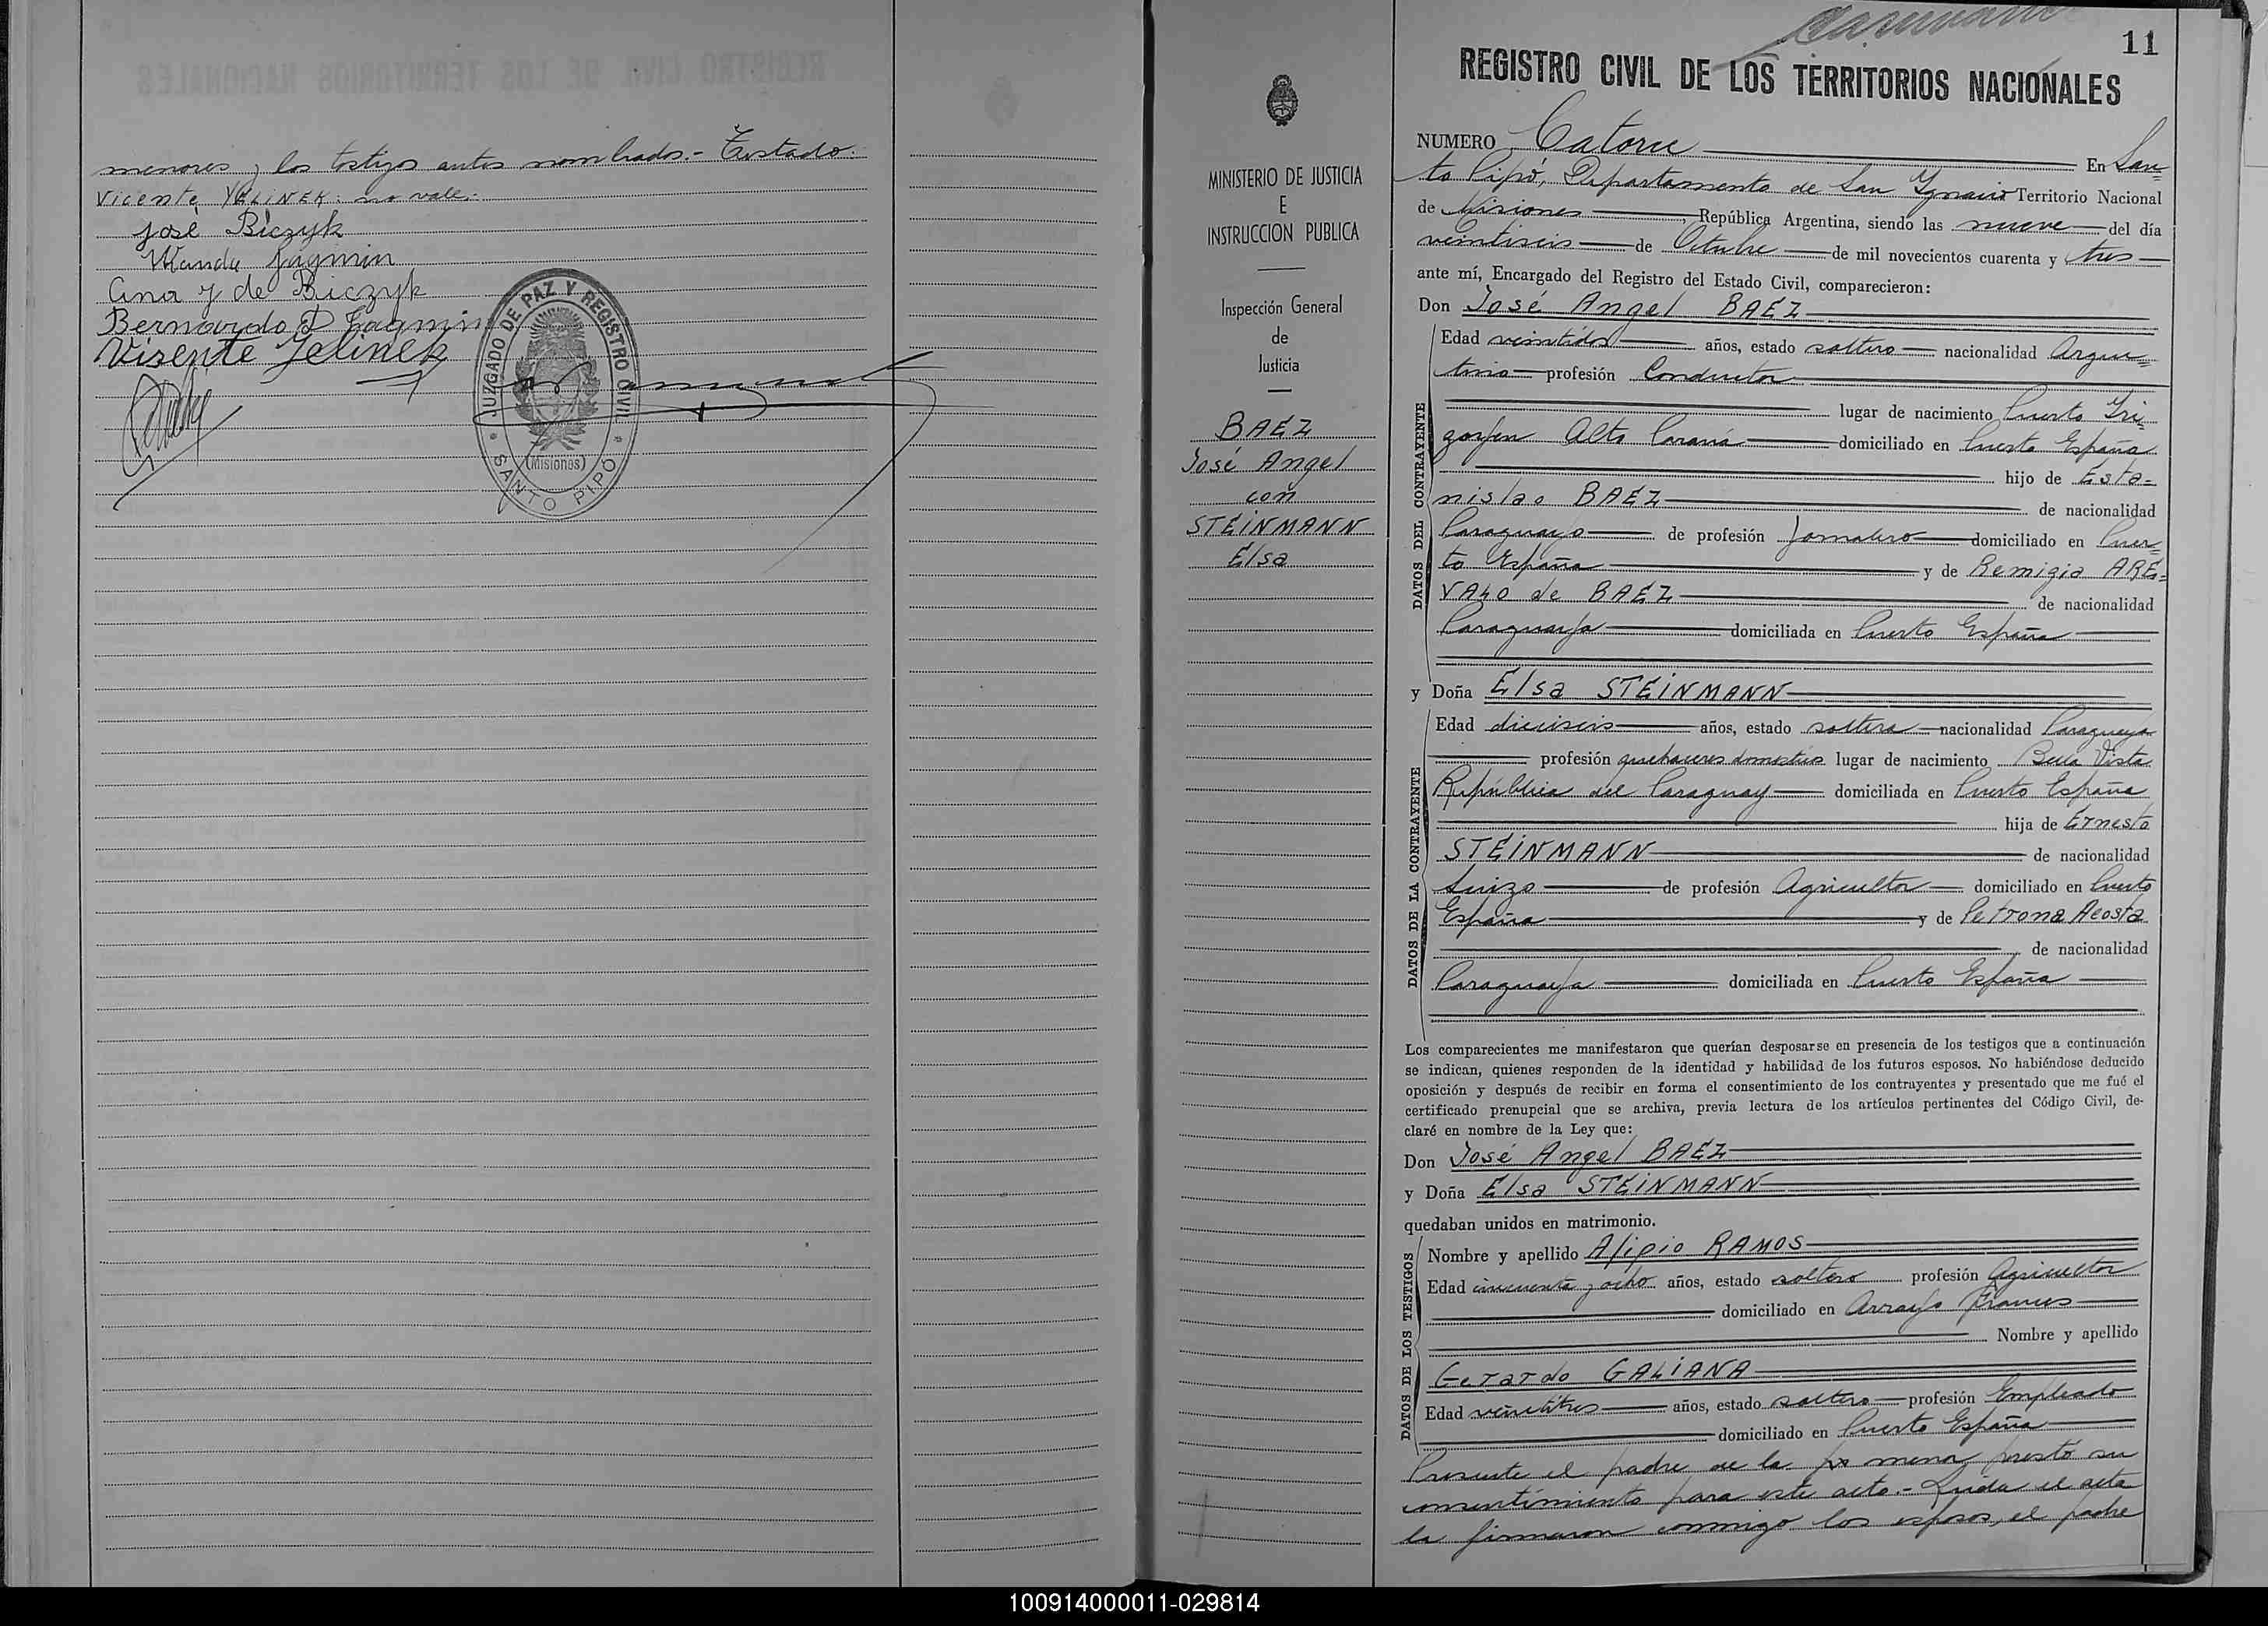 menores y los testigos antes nombrados.- Testado:
Vicente YELINEK: no vale.
José Biczyk
Wanda Jagmin
Ana J de Biczyk
Bernardo Jagmin
Visente Jelinek
JUZGADO DE PAZ Y REGISTRO CIVIL
(Misiones)
SANTO PIPO
MINISTERIO DE JUSTICIA
E
INSTRUCCION PUBLICA
Inspección General
de
Justicia
BAEZ
José Angel
con
STEINMANN
Elsa
11
REGISTRO CIVIL DE LOS TERRITORIOS NACIONALES
NUMERO Catorce En San=
to Pipó, Departamento de San Ygnacio Territorio Nacional
de Misiones, República Argentina, siendo las nueve del día
veintiseis de Octubre de mil novecientos cuarenta y tres
ante mí, Encargado del Registro del Estado Civil, comparecieron:
Don José Angel BAEZ
DATOS DEL CONTRAYENTE
Edad veintidos años, estado soltero nacionalidad Argen=
tino profesión Conductor
lugar de nacimiento Puerto Yri=
goyen Alto Paraná domiciliado en Puerto España
hijo de Esta=
nislao BAEZ de nacionalidad
Paraguayo de profesión Jornalero domiciliado en Puer=
to España y de Remigia ARE=
VALO de BAEZ de nacionalidad
Paraguaya domiciliada en Puerto España
y Doña Elsa STEINMANN
DATOS DE LA CONTRAYENTE
Edad dieciseis años, estado soltera nacionalidad Paraguaya
profesión quehaceres domésticos lugar de nacimiento Bella Vista
República del Paraguay domiciliada en Puerto España
hija de Ernesto
STEINMANN de nacionalidad
Suizo de profesión Agricultor domiciliado en Puerto
España y de Petrona Acosta
de nacionalidad
Paraguaya domiciliada en Puerto España
Los comparecientes me manifestaron que querían desposarse en presencia de los testigos que a continuación
se indican, quienes responden de la identidad y habilidad de los futuros esposos. No habiéndose deducido
oposición y después de recibir en forma el consentimiento de los contrayentes y presentado que me fué el
certificado prenupcial que se archiva, previa lectura de los artículos pertinentes del Código Civil, de-
claré en nombre de la Ley que:
Don José Angel BAEZ
y Doña Elsa STEINMANN
quedaban unidos en matrimonio.
DATOS DE LOS TESTIGOS
Nombre y apellido Alipio RAMOS
Edad cincuenta y ocho años, estado soltero profesión Agricultor
domiciliado en Arroyo Frances
Nombre y apellido
Gerardo GALIANA
Edad veintitres años, estado soltero profesión Empleado
domiciliado en Puerto España
Presente el padre de la menor prestó su
consentimiento para este acto.- Leida el acta
la firmaron conmigo los esposos, el padre
100914000011-029814